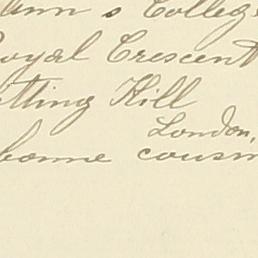 ann's College
Royal Crescent
otting Hill
London,
bonne cousin